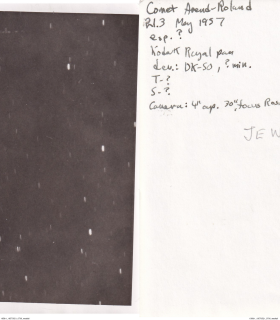 Comet Arend-Roland
Pl.3 May 1957
exp. ?
Kodak Royal pan
dev.: DK-50, ? min.
T-?
S-?
Camera: 4" ap. 30" focus
JEW